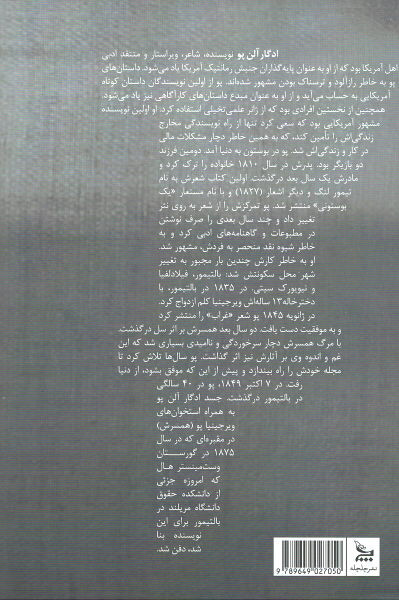 ادگار آلن پو نویسنده، شاعر، ویراستار و منتقد ادبی
اهل آمریکا بود که از او به عنوان پایه‌گذاران جنبش رمانتیک آمریکا یاد می‌شود. داستان‌های
پو به خاطر رازآلود و ترسناک بودن مشهور شده‌اند. پو از اولین نویسندگان داستان کوتاه
آمریکایی به حساب می‌آید و از او به عنوان مبدع داستان‌های کارآگاهی نیز یاد می‌شود.
همچنین از نخستین افرادی بود که از ژانر علمی‌تخیلی استفاده کرد. او اولین نویسنده
مشهور آمریکایی بود که سعی کرد تنها از راه نویسندگی مخارج
زندگی‌اش را تأمین کند، که به همین خاطر دچار مشکلات مالی
در کار و زندگی‌اش شد. پو در بوستون به دنیا آمد. دومین فرزند
دو بازیگر بود. پدرش در سال ۱۸۱۰ خانواده را ترک کرد و
مادرش یک سال بعد درگذشت. اولین کتاب شعرش به نام
تیمور لنگ و دیگر اشعار (۱۸۲۷) و با نام مستعار «یک
بوستونی» منتشر شد. پو تمرکزش را از شعر به روی نثر
تغییر داد و چند سال بعدی را صرف نوشتن
در مطبوعات و گاهنامه‌های ادبی کرد و به
خاطر شیوه نقد منحصر به فردش، مشهور شد.
او به خاطر کارش چندین بار مجبور به تغییر
شهر محل سکونتش شد: بالتیمور، فیلادلفیا
و نیویورک سیتی. در ۱۸۳۵ در بالتیمور، با
دخترخاله ۱۳ ساله‌اش ویرجینیا کلم ازدواج کرد.
در ژانویه ۱۸۴۵ پو شعر «غراب» را منتشر کرد
و به موفقیت دست یافت. دو سال بعد همسرش بر اثر سل درگذشت.
با مرگ همسرش دچار سرخوردگی و ناامیدی بسیاری شد که این
غم و اندوه وی بر آثارش نیز اثر گذاشت. پو سال‌ها تلاش کرد تا
مجله خودش را راه بیندازد و پیش از این که موفق بشود، از دنیا
رفت. در ۷ اکتبر ۱۸۴۹، پو در ۴۰ سالگی
در بالتیمور درگذشت. جسد ادگار آلن پو
به همراه استخوان‌های
ویرجینیا پو (همسرش)
در مقبره‌ای که در سال
۱۸۷۵ در گورستان
وست‌مینستر هال
که امروزه جزئی
از دانشکده حقوق
دانشگاه مریلند در
بالتیمور برای این
نویسنده بنا
شده، دفن شد.
9 789649 027050
نشر چلچله